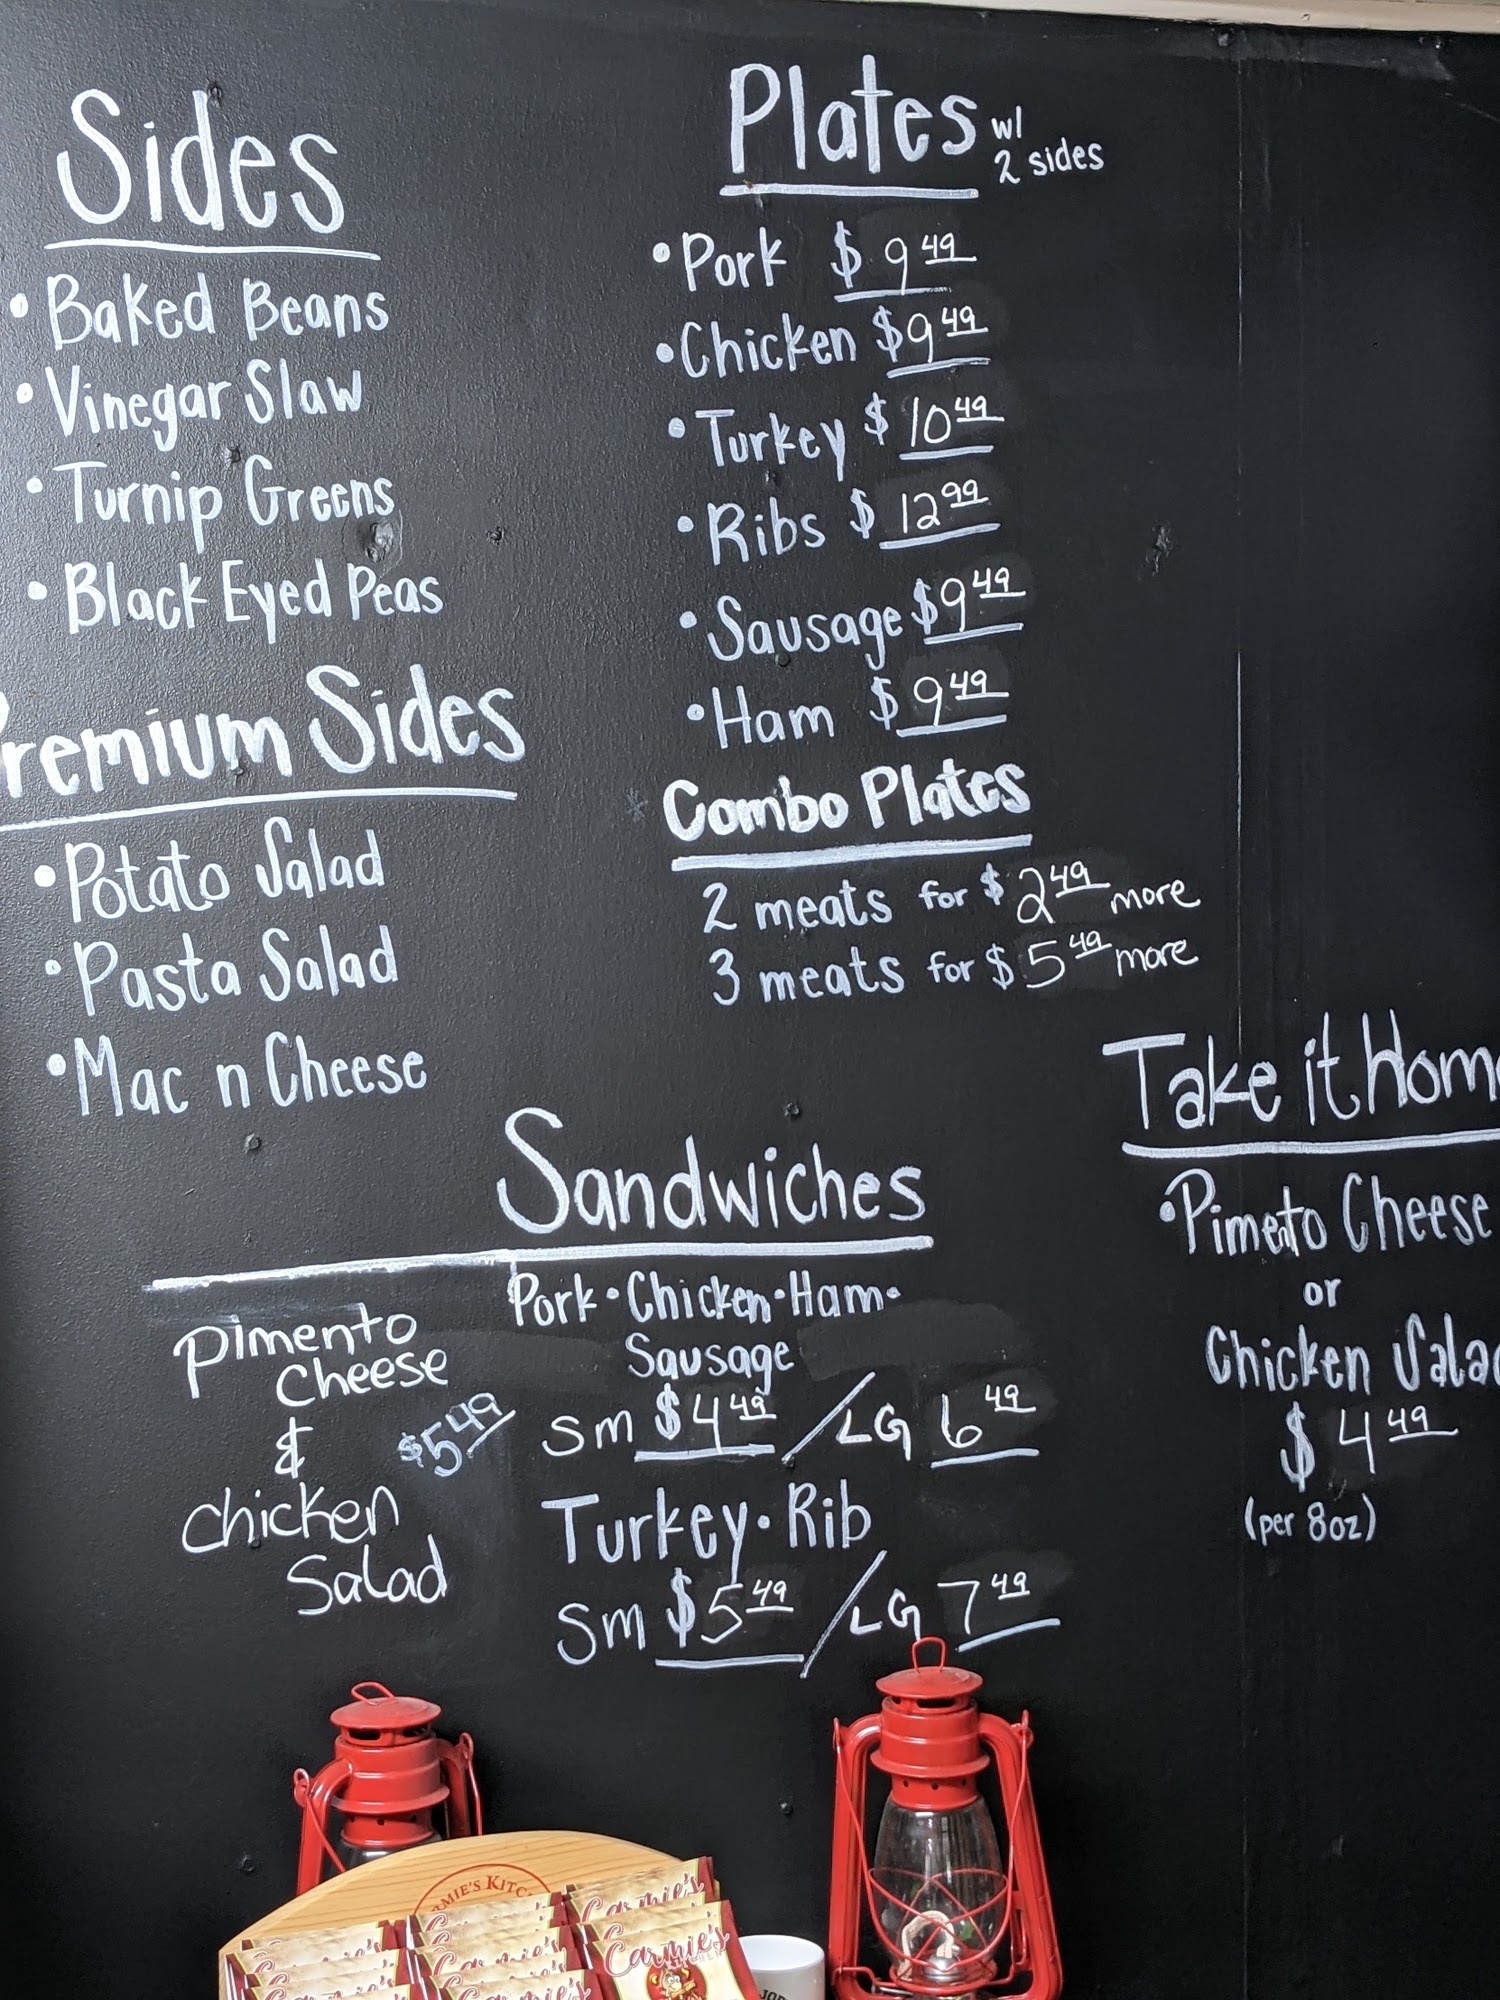 Sides
• Baked Beans
• Vinegar Slaw
• Turnip Greens
• Black Eyed Peas
Premium Sides
• Potato Salad
• Pasta Salad
• Mac n Cheese
Plates w/ 2 sides
• Pork $ 9 49
• Chicken $9 49
• Turkey $ 10 49
• Ribs $ 12 99
• Sausage $9 49
• Ham $ 9 49
Combo Plates
2 meats for $ 2 49 more
3 meats for $ 5 49 more
Sandwiches
Pimento
Cheese
&
Chicken
Salad
$5 49
Pork • Chicken • Ham •
Sausage
Sm $4 49 / LG 6 49
Turkey • Rib
Sm $5 49 / LG 7 49
Take it Hom
• Pimento Cheese
or
Chicken Sala
$ 4 49
(per 8oz)
Carmie's
Carmie's
Carmie's
Carmie's